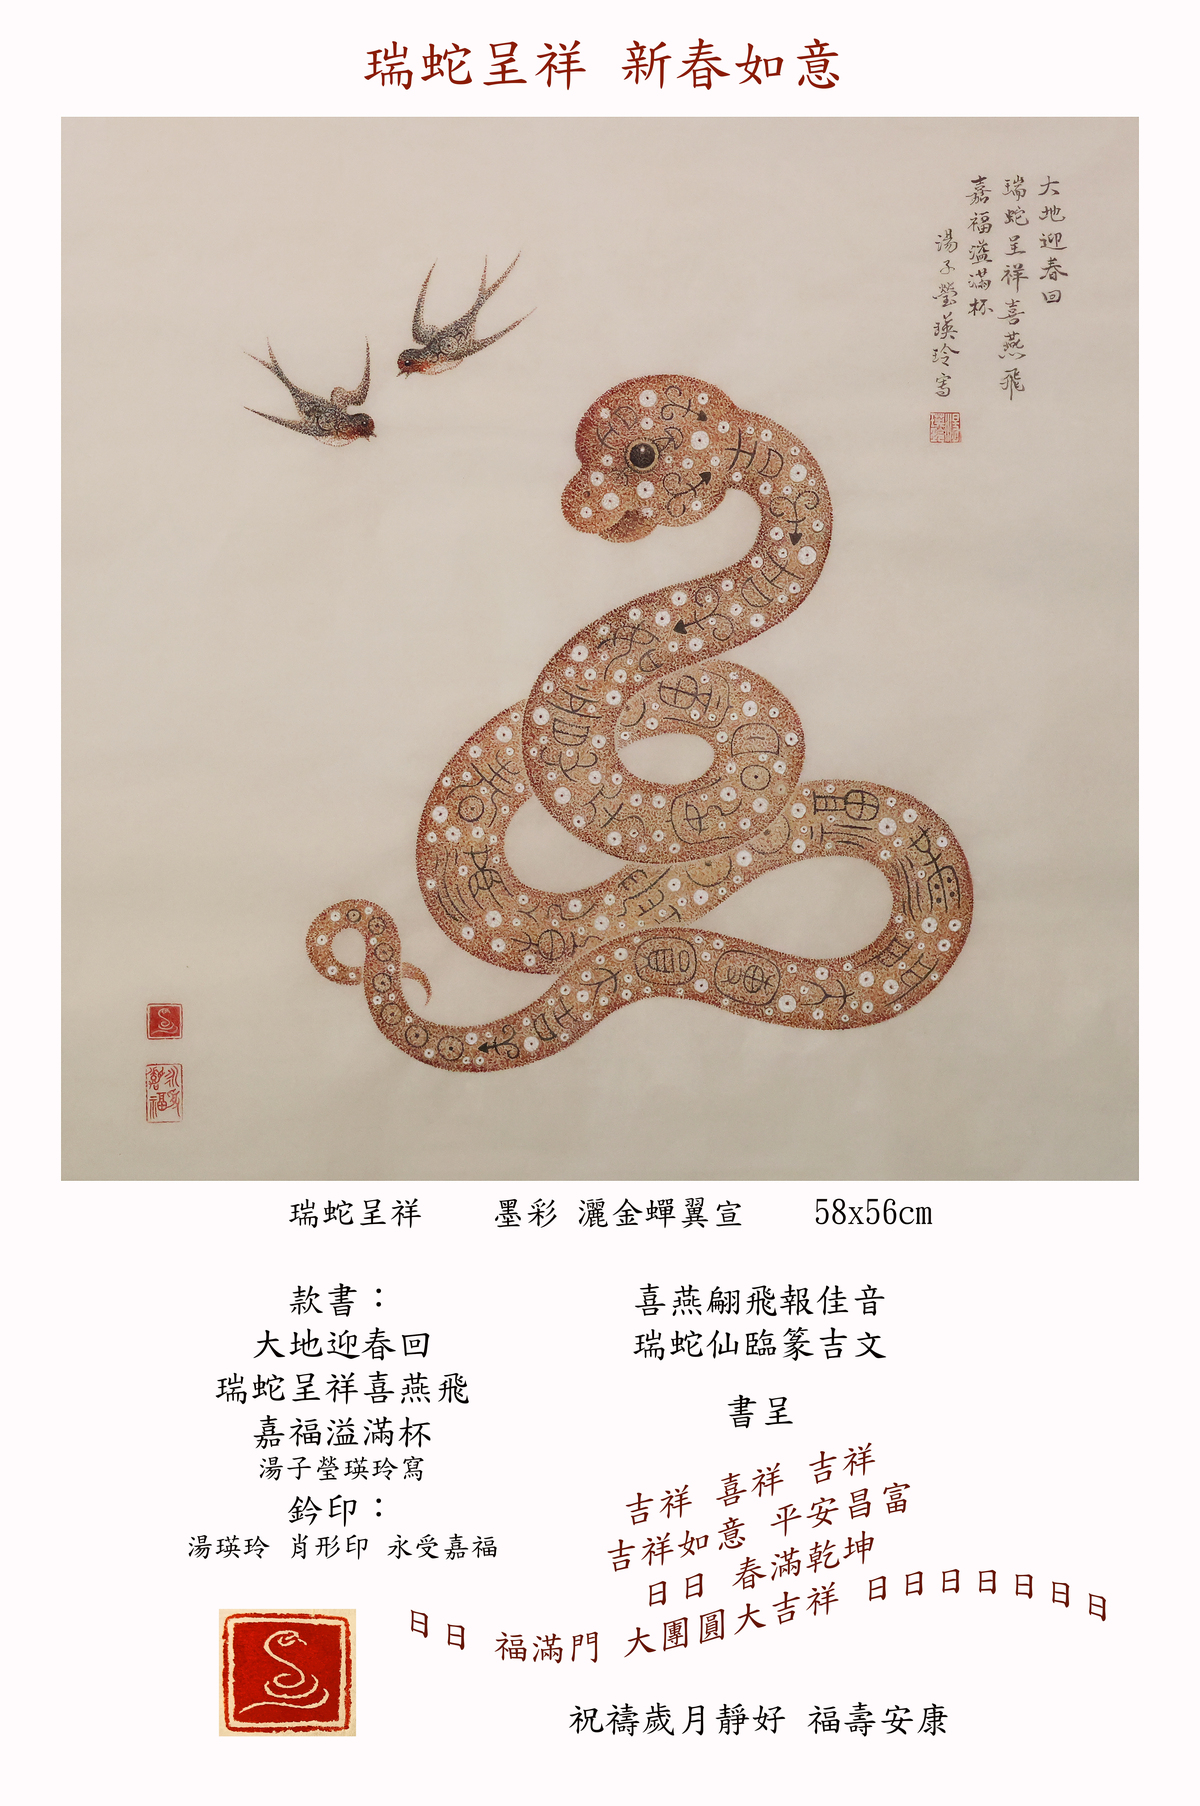 瑞蛇呈祥 新春如意
大地迎春回
瑞蛇呈祥喜燕飛
嘉福溢滿杯
湯子瑩瑛玲寫
永受嘉福
瑞蛇呈祥 墨彩 灑金蟬翼宣 58x56cm
款書：
大地迎春回
瑞蛇呈祥喜燕飛
嘉福溢滿杯
湯子瑩瑛玲寫
鈐印：
湯瑛玲 肖形印 永受嘉福
喜燕翩飛報佳音
瑞蛇仙臨篆吉文
書呈
吉祥 喜祥 吉祥
吉祥如意 平安昌富
日日 春滿乾坤
日日 福滿門 大團圓大吉祥 日日日日日日日
祝禱歲月靜好 福壽安康